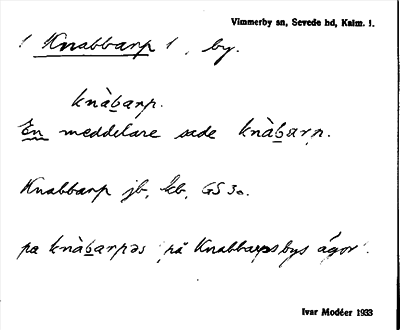 Vimmerby sn, Sevede hd, Kalm. l.
! Knabbarp !, by.
knàb̲arp.
En meddelare sade knàb̲arp.
Knabbarp jb, kb, GS 30.
pa knàb̲arpəs 'på Knabbarpsbys ägor'.
Ivar Modéer 1933